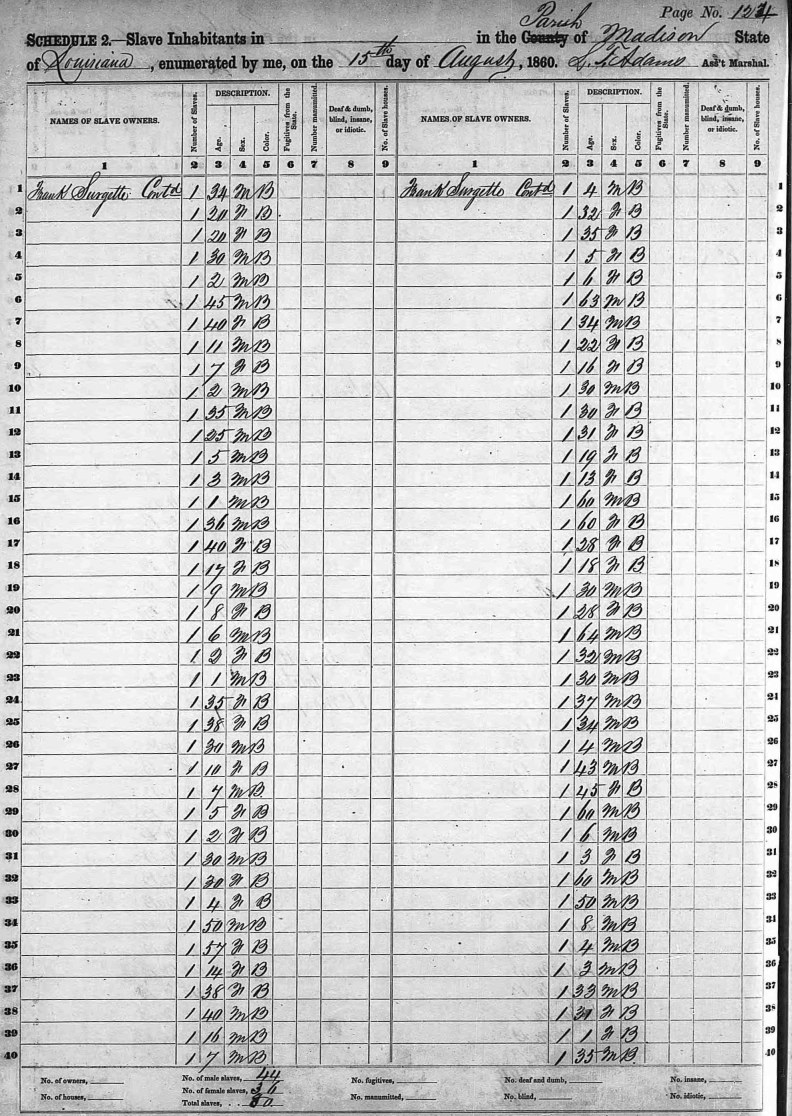 Page No. 124
SCHEDULE 2.—Slave Inhabitants in in the County Parish of Madison State
of Louisiana, enumerated by me, on the 15th day of August, 1860. L. F. Adams Ass't Marshal.
NAMES OF SLAVE OWNERS. Number of Slaves. DESCRIPTION. Age. Sex. Color. Fugitives from the State. Number manumitted. Deaf & dumb, blind, insane, or idiotic. No. of Slave houses. NAMES OF SLAVE OWNERS. Number of Slaves. DESCRIPTION. Age. Sex. Color. Fugitives from the State. Number manumitted. Deaf & dumb, blind, insane, or idiotic. No. of Slave houses.
1 2 3 4 5 6 7 8 9 1 2 3 4 5 6 7 8 9
1 Frank Surgette Contd 1 34 M B Frank Surgette Contd 1 4 M B 1
2 1 20 F B 1 32 F B 2
3 1 20 F B 1 35 F B 3
4 1 30 M B 1 5 F B 4
5 1 2 M B 1 6 F B 5
6 1 45 M B 1 63 M B 6
7 1 40 F B 1 34 M B 7
8 1 11 M B 1 22 F B 8
9 1 7 F B 1 16 F B 9
10 1 2 M B 1 30 M B 10
11 1 35 M B 1 30 F B 11
12 1 25 M B 1 31 F B 12
13 1 5 M B 1 19 F B 13
14 1 3 M B 1 13 F B 14
15 1 1 M B 1 60 M B 15
16 1 36 M B 1 60 F B 16
17 1 40 F B 1 28 F B 17
18 1 17 F B 1 18 F B 18
19 1 9 M B 1 30 M B 19
20 1 8 F B 1 28 F B 20
21 1 6 M B 1 64 M B 21
22 1 2 F B 1 32 M B 22
23 1 1 M B 1 30 M B 23
24 1 35 F B 1 37 M B 24
25 1 38 F B 1 34 M B 25
26 1 30 M B 1 4 M B 26
27 1 10 F B 1 43 M B 27
28 1 7 M B 1 45 F B 28
29 1 5 F B 1 60 M B 29
30 1 2 F B 1 6 M B 30
31 1 30 M B 1 3 F B 31
32 1 30 F B 1 60 M B 32
33 1 4 F B 1 50 M B 33
34 1 50 M B 1 8 M B 34
35 1 57 F B 1 4 M B 35
36 1 14 F B 1 3 M B 36
37 1 38 F B 1 33 M B 37
38 1 40 M B 1 F B 38
39 1 16 M B 1 1 F B 39
40 1 7 M B 1 35 M B 40
No. of owners, No. of male slaves, 44 No. fugitives, No. of deaf and dumb, No. of insane,
No. of houses, No. of female slaves, 36 No. manumitted, No. of blind, No. of idiotic,
Total slaves, 80